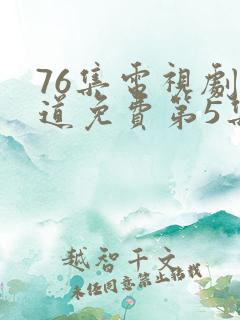 76集電視劇
道免費第5集
越智千文
未任同意禁止轉載